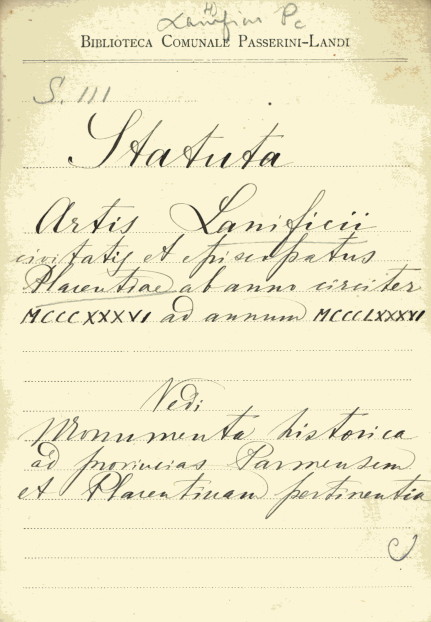 Lanificii Pc
BIBLIOTECA COMUNALE PASSERINI-LANDI
S. III
Statuta
Artis Lanificii
civitatis et episcopatus
Placentiae ab anno circiter
MCCCXXXVI ad annum MCCCLXXXVI
Vedi
Monumenta historica
ad provincias Parmensem
et Placentinam pertinentia